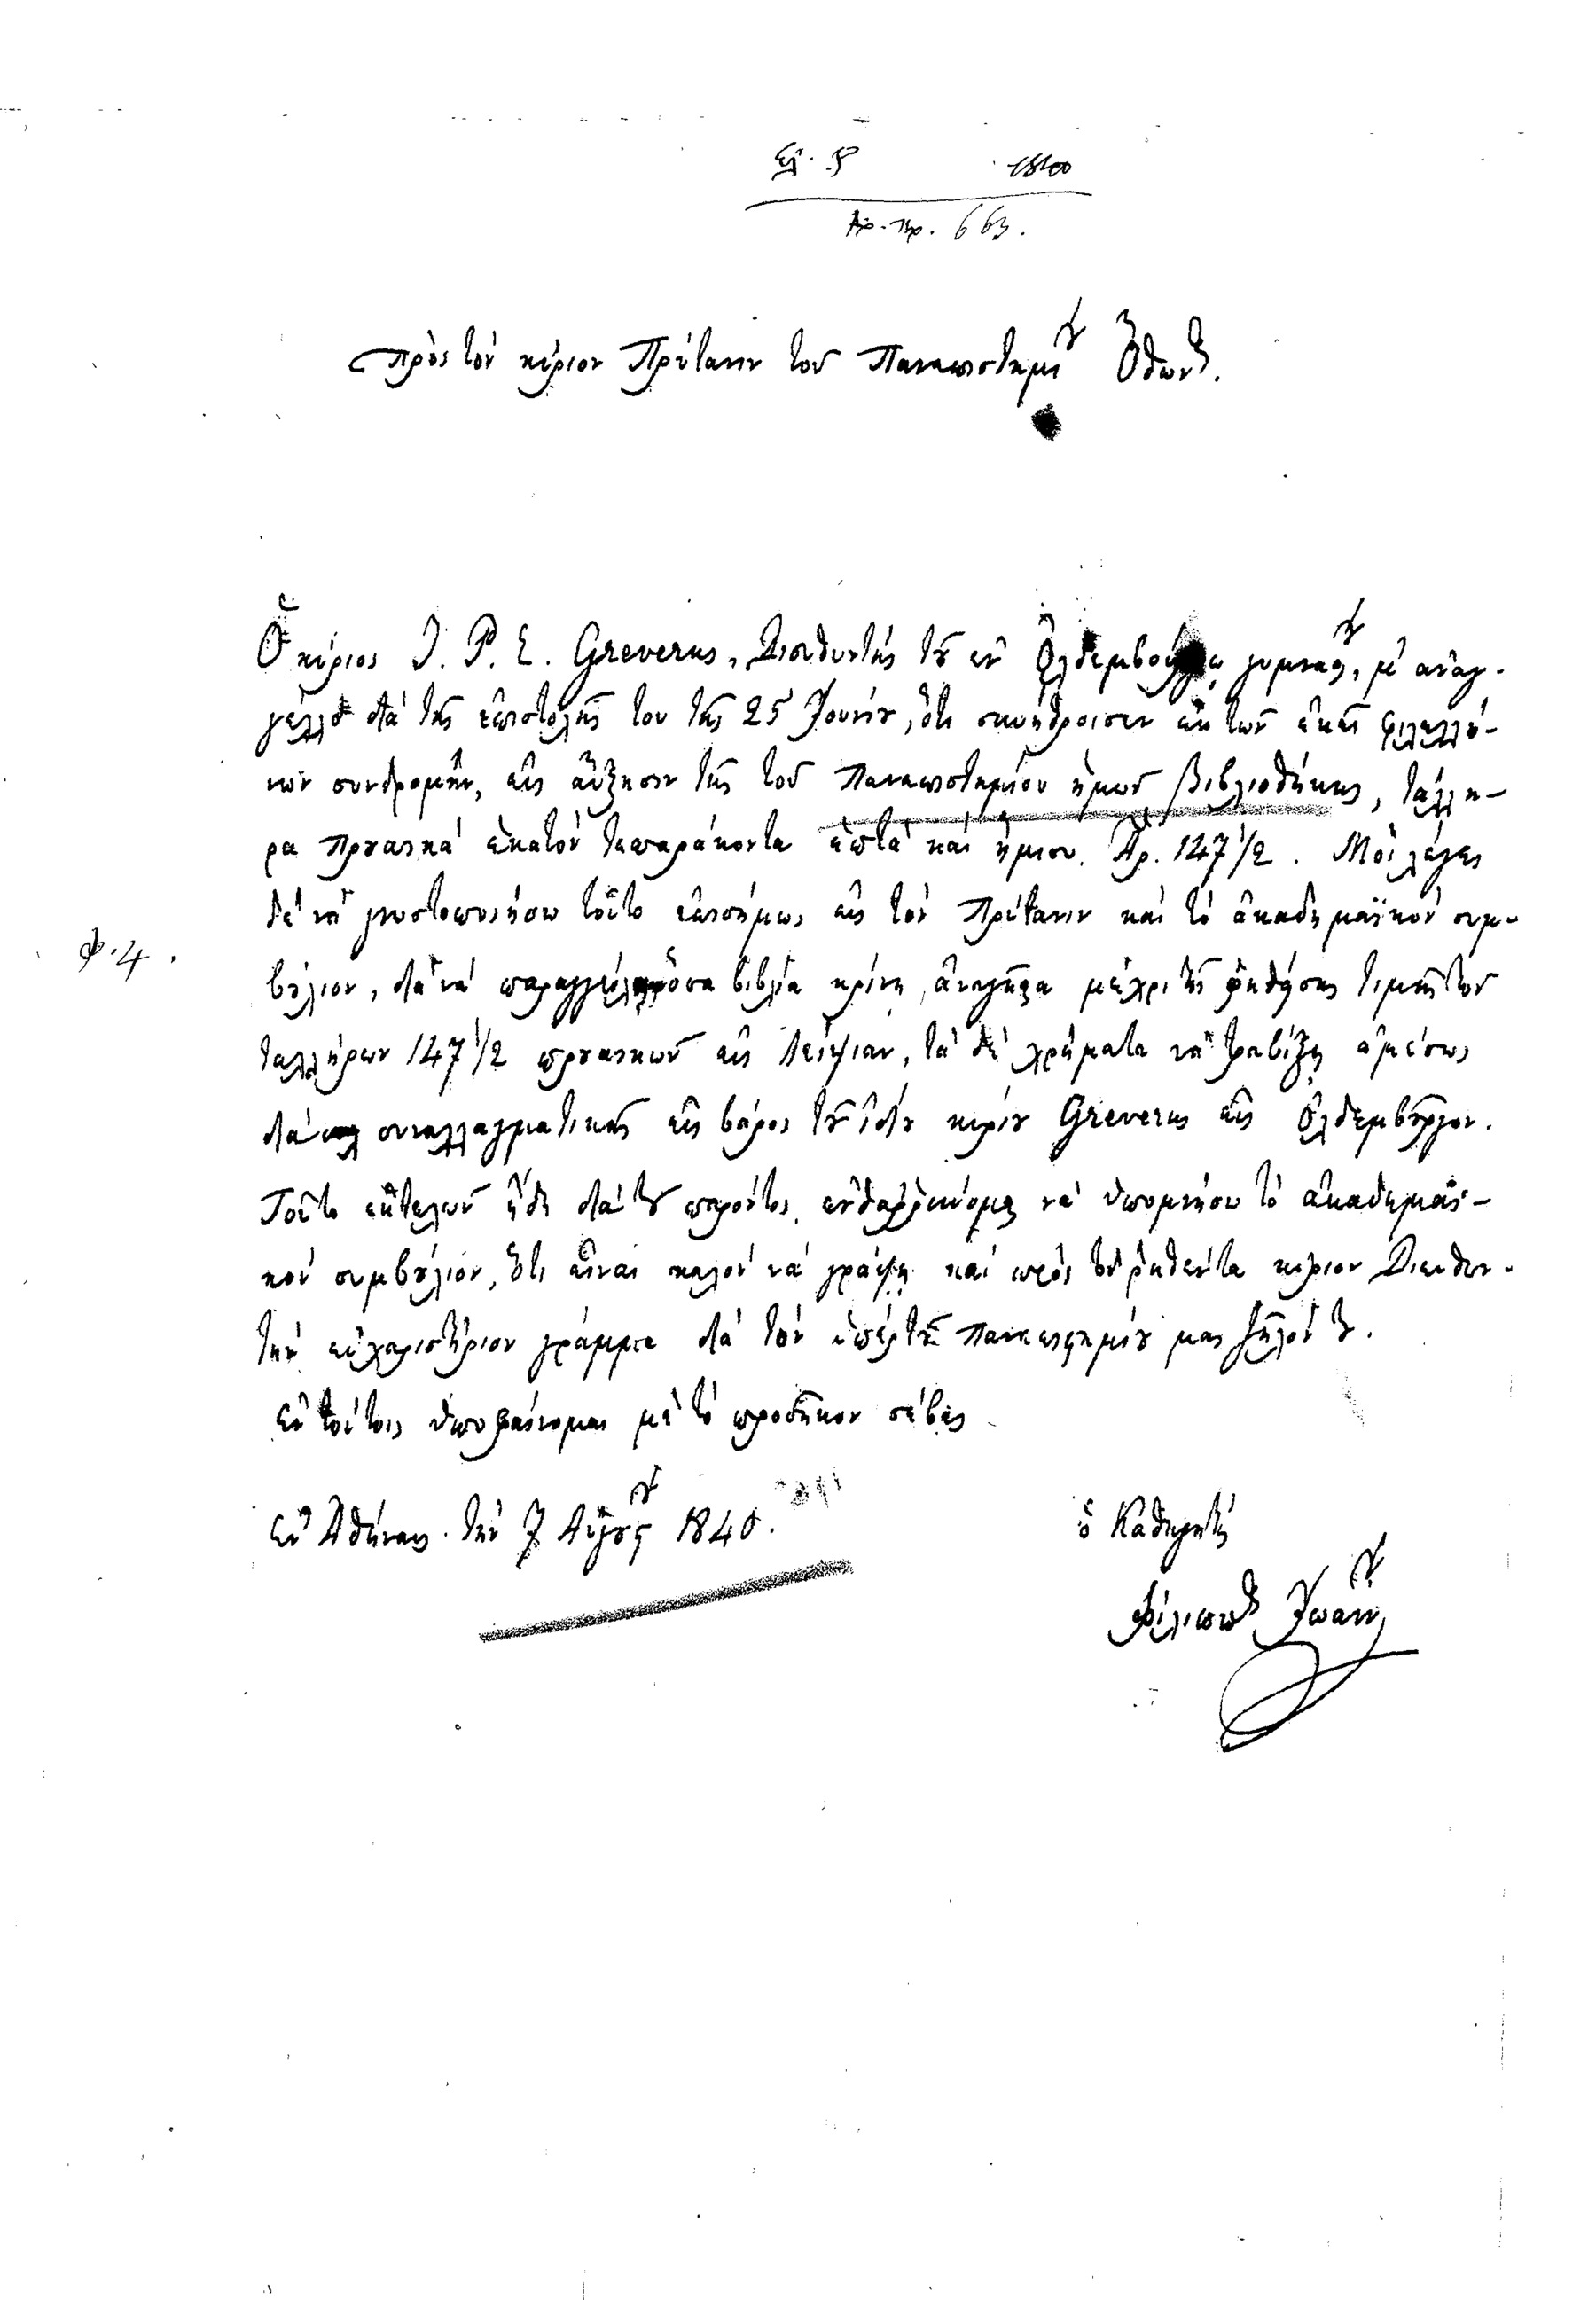 1840
Αρ. πρ. 663.
Πρὸς τὸν κύριον Πρύτανιν τοῦ Πανεπιστημίου Ὄθωνος.
Ὁ κύριος J. P. E. Greverus, Διευθυντής τοῦ ἐν Ὀλδεμβούργῳ γυμνασίου, μὲ ἀναγ-
γέλλει διὰ τῆς ἐπιστολῆς του τῆς 25 Ἰουνίου, ὅτι συνήθροισεν ἐκ τῶν ἐκεῖ φιλελλή-
νων συνδρομὴν, εἰς αὔξησιν τῆς τοῦ Πανεπιστημίου ἡμῶν βιβλιοθήκης, τάλλη-
ρα Πρυσικὰ ἑκατὸν τεσσαράκοντα ἑπτὰ καὶ ἥμισυ. Ἀρ. 147 1/2. Μοὶ λέγει
δὲ νὰ γνωστοποιήσω τοῦτο ἐπισήμως εἰς τὸν Πρύτανιν καὶ τὸ ἀκαδημαϊκὸν συμ-
φ. 4.
βούλιον, διὰ νὰ παραγγείλῃ ὅσα βιβλία κρίνῃ ἀναγκαῖα μέχρι τῆς ῥηθείσης τιμῆς τῶν
ταλλήρων 147 1/2 πρυσικῶν εἰς Λειψίαν, τὰ δὲ χρήματα νὰ τραβίξῃ ἀμέσως
διὰ συναλλαγματικῆς εἰς βάρος τοῦ ἰδίου κυρίου Greverus εἰς Ὀλδεμβοῦργον.
Τοῦτο ἐκτελῶν ἤδη διὰ τοῦ παρόντος, ἐνθαρρύνομαι νὰ ὑπομνήσω τὸ ἀκαδημαϊ-
κὸν συμβούλιον, ὅτι εἶναι καλὸν νὰ γράψῃ καὶ πρὸς τὸν ῥηθέντα κύριον Διευθυν-
τὴν εὐχαριστήριον γράμμα διὰ τὸν ὑπὲρ τοῦ Πανεπιστημίου μας ζῆλόν του.
Ἐν τούτοις ὑποφαίνομαι μὲ τὸ προσῆκον σέβας
Ἐν Ἀθήναις τὴν 7 Αὐγούστου 1840.
ὁ Καθηγητής
Φίλιππος Ἰωάννου